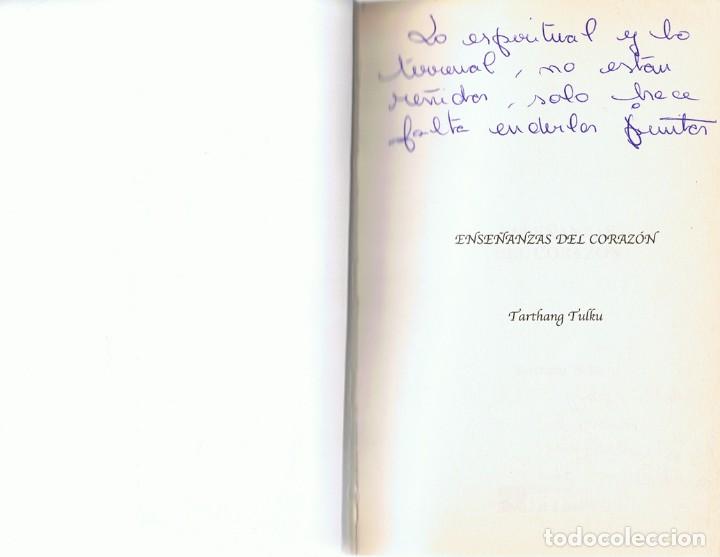 Lo espiritual y lo
terrenal, no están
reñidos, solo hace
falta juntos
ENSEÑANZAS DEL CORAZÓN
Tarthang Tulku
todocoleccion.net